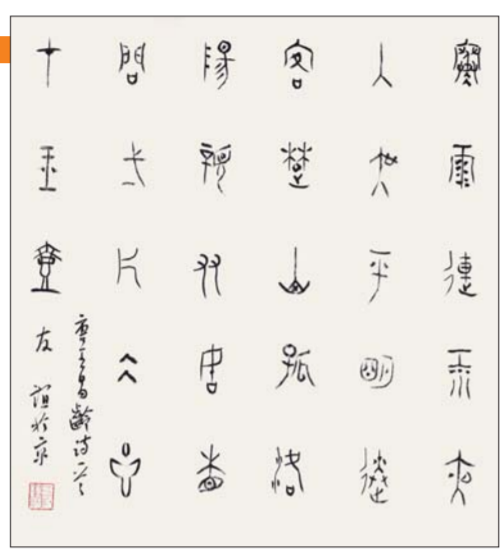 寒雨連天夜
入吳平明送
客楚山孤洛
陽親友如相
問一片冰心
在玉壺
唐王昌齡詩一首
友誼於京